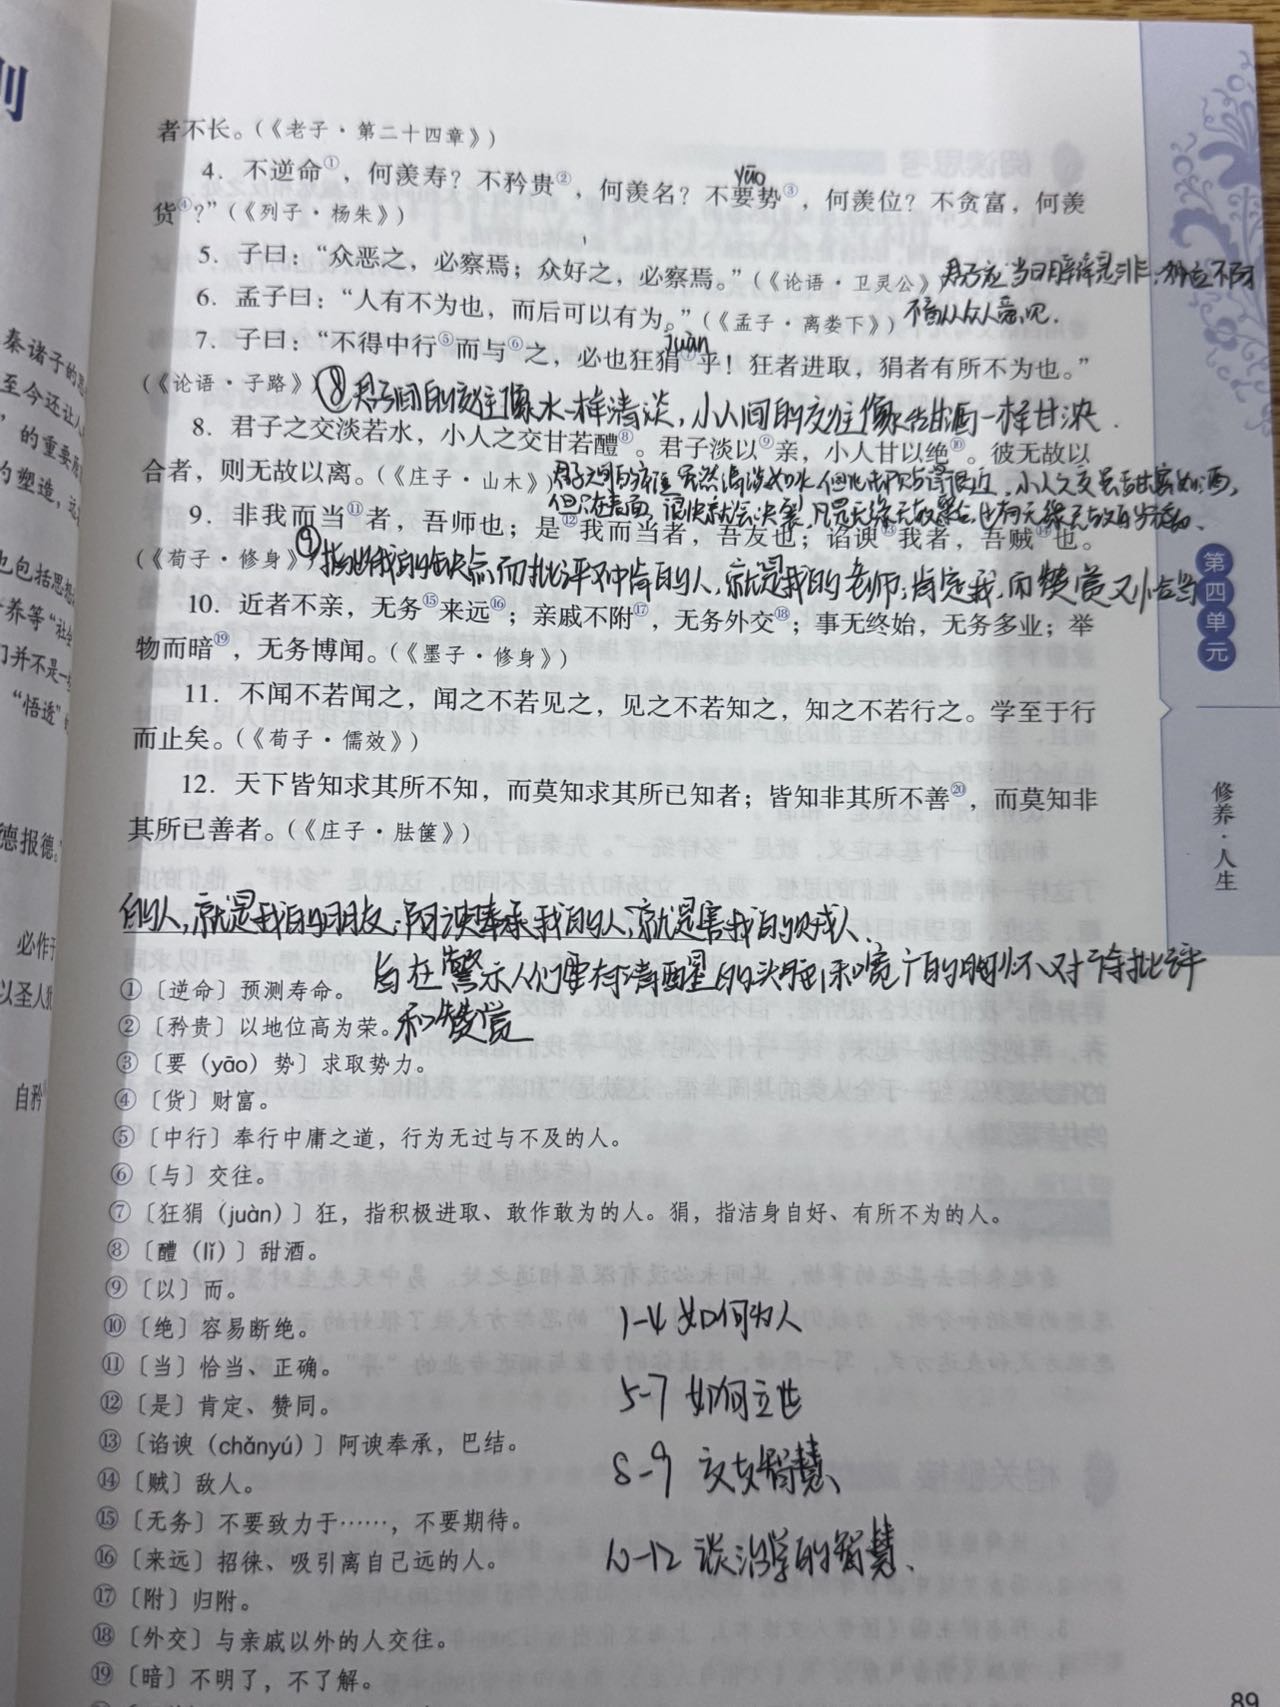 则
者不长。(《老子·第二十四章》)
4．不逆命①，何羡寿？不矜贵②，何羡名？不要势③，何羡位？不贪富，何羡
yāo
货④?”(《列子·杨朱》)
5．子曰：“众恶之，必察焉；众好之，必察焉。”(《论语·卫灵公》)
君子应当明辨是非,
6．孟子曰：“人有不为也，而后可以有为。”(《孟子·离娄下》)
盲从众人意见.
juàn
7．子曰：“不得中行⑤而与⑥之，必也狂狷⑦乎！狂者进取，狷者有所不为也。”
(《论语·子路》)
⑧君子间的交往像水一样清淡,小人间的交往像甜酒一样甘浓.
8．君子之交淡若水，小人之交甘若醴⑧。君子淡以⑨亲，小人甘以绝⑩。彼无故以
合者，则无故以离。(《庄子·山木》)
但只在表面,很快就会决裂,凡是无缘无故聚合,也有无缘无故的
9．非我而当⑪者，吾师也；是⑫我而当者，吾友也；谄谀⑬我者，吾贼⑭也。
(《荀子·修身》)
⑨指出我的缺点,而批评又中肯的人,就是我的老师;肯定我,而赞赏又恰当
10．近者不亲，无务⑮来远⑯；亲戚不附⑰，无务外交⑱；事无终始，无务多业；举
物而暗⑲，无务博闻。(《墨子·修身》)
11．不闻不若闻之，闻之不若见之，见之不若知之，知之不若行之。学至于行
而止矣。(《荀子·儒效》)
12．天下皆知求其所不知，而莫知求其所已知者；皆知非其所不善⑳，而莫知非
其所已善者。(《庄子·胠箧》)
的人,就是我的朋友;阿谀奉承我的人,就是害我的贼人.
旨在警示人们要有清醒的头脑和宽广的胸怀对待批评
和赞赏
①〔逆命〕预测寿命。
②〔矜贵〕以地位高为荣。
③〔要（yāo）势〕求取势力。
④〔货〕财富。
⑤〔中行〕奉行中庸之道，行为无过与不及的人。
⑥〔与〕交往。
⑦〔狂狷（juàn）〕狂，指积极进取、敢作敢为的人。狷，指洁身自好、有所不为的人。
⑧〔醴（lǐ）〕甜酒。
⑨〔以〕而。
⑩〔绝〕容易断绝。
⑪〔当〕恰当、正确。
⑫〔是〕肯定、赞同。
⑬〔谄谀（chǎnyú）〕阿谀奉承，巴结。
⑭〔贼〕敌人。
⑮〔无务〕不要致力于……，不要期待。
⑯〔来远〕招徕、吸引离自己远的人。
⑰〔附〕归附。
⑱〔外交〕与亲戚以外的人交往。
⑲〔暗〕不明了，不了解。
1-4 如何为人
5-7 如何立世
8-9 交友智慧、
10-12 谈治学的智慧.
第四单元
修养·人生
89
秦诸子的思
至今还让人
”的重要
的塑造，这
也包括思想
养等“社会
们并不是一
“悟透”
德报德。
必作于
以圣人
自矜